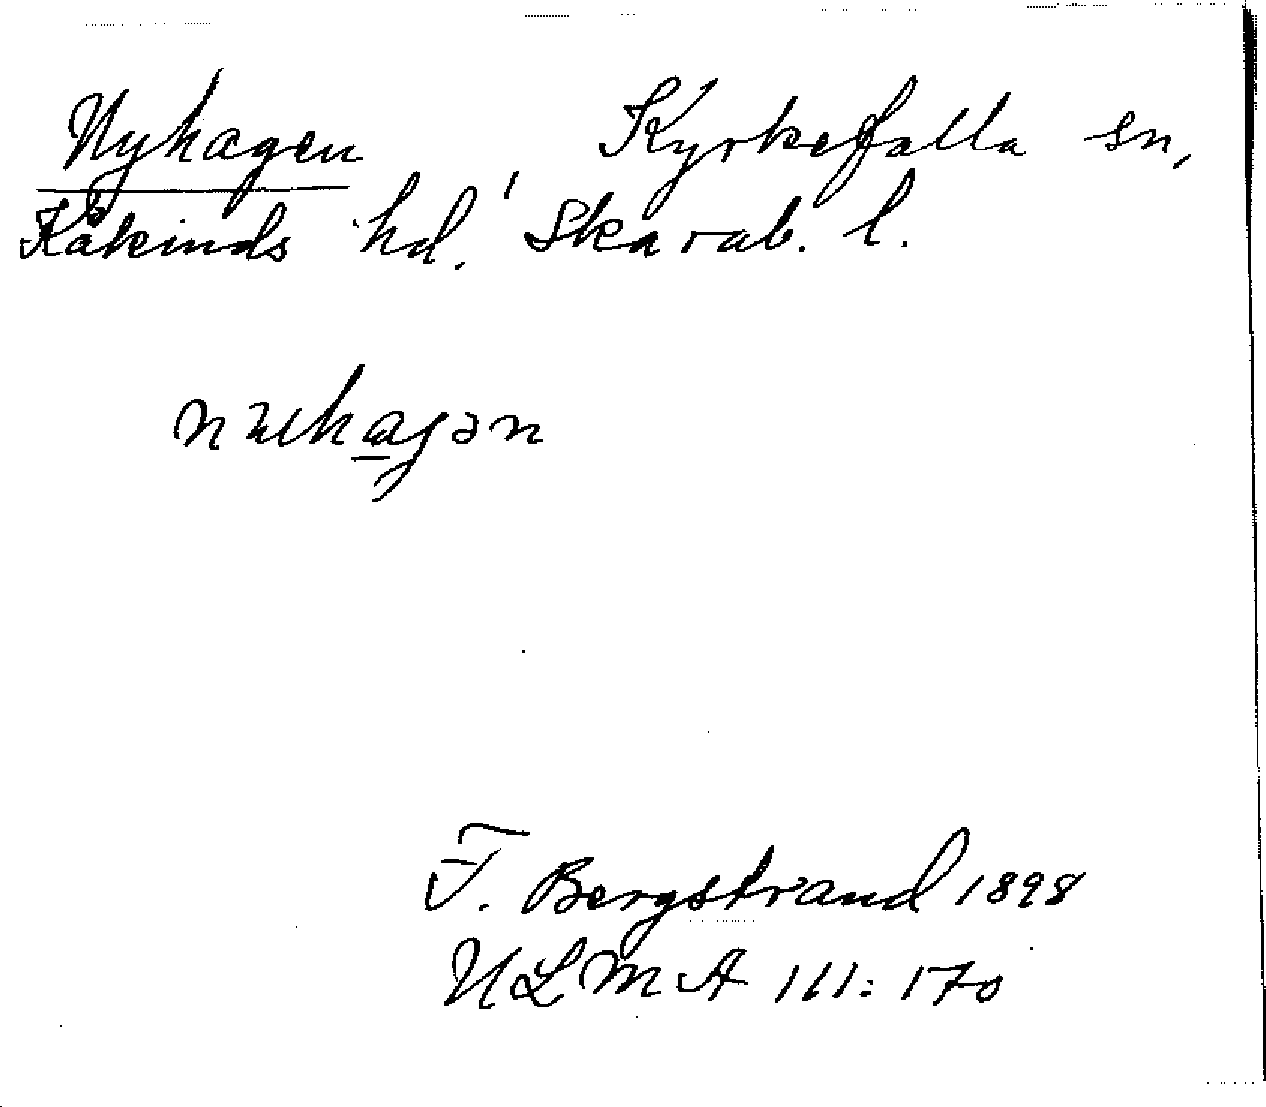 Nyhagen Kyrkefalla sn,
Kåkinds hd. Skarab. l.
F. Bergstrand 1898
ULMA 111: 170